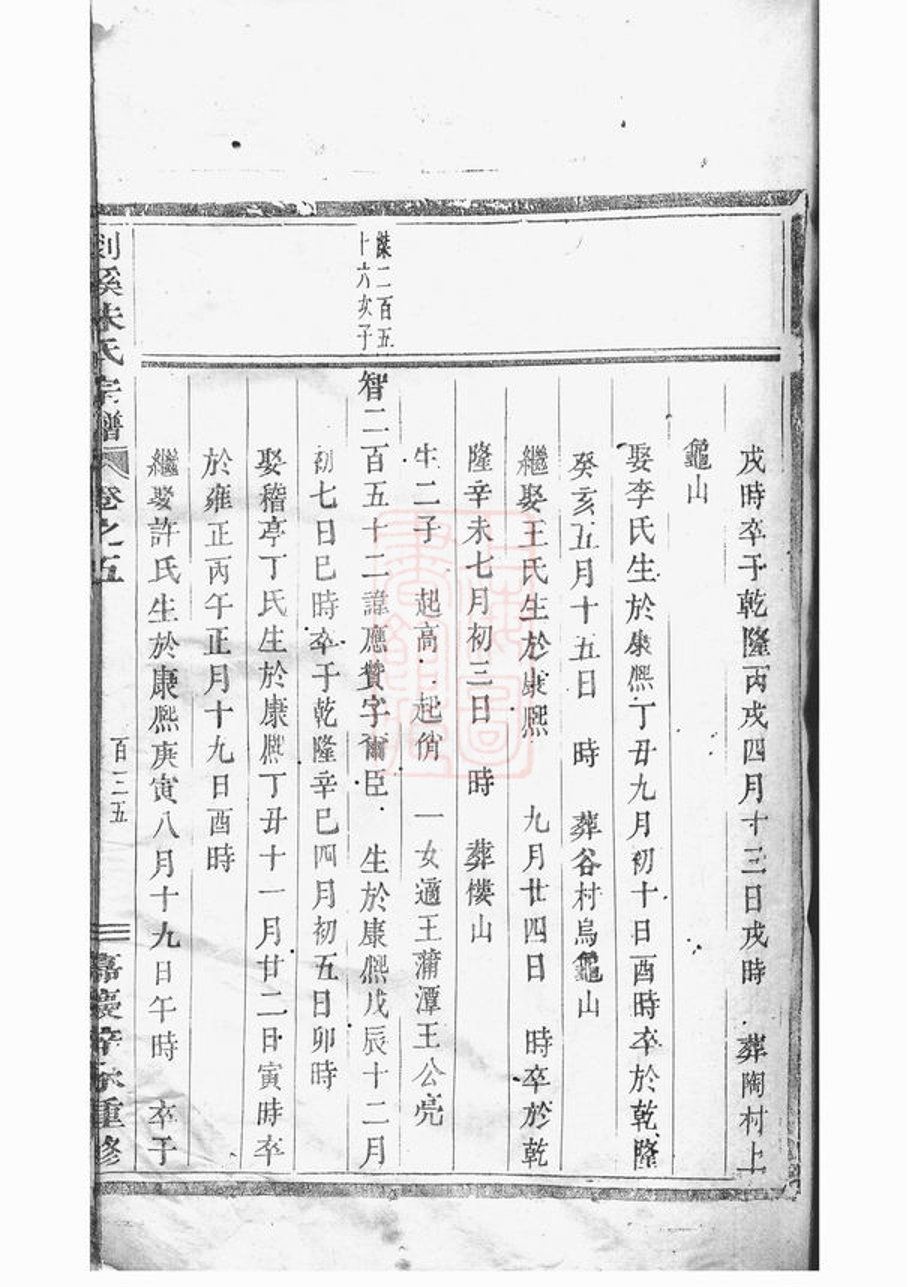 戌時卒于乾隆丙戌四月十三日戌時　葬陶村上
龜山
娶李氏生於康熙丁丑九月初十日酉時卒於乾隆
癸亥五月十五日　時　葬谷村烏龜山
繼娶王氏生於康熙　九月廿四日　時卒於乾
隆辛未七月初三日　時　葬樓山
生二子　起高　起俏　一女適王蒲潭王公亮
二百五
十六次子
智二百五十二諱應贊字爾臣　生於康熙戊辰十二月
初七日巳時卒于乾隆辛巳四月初五日卯時
娶稽亭丁氏生於康熙丁丑十一月廿二日寅時卒
於雍正丙午正月十九日酉時
繼娶許氏生於康熙庚寅八月十九日午時　卒于
剡溪朱氏宗譜　卷之五　百三五　嘉慶辛未重修
上海圖書館藏